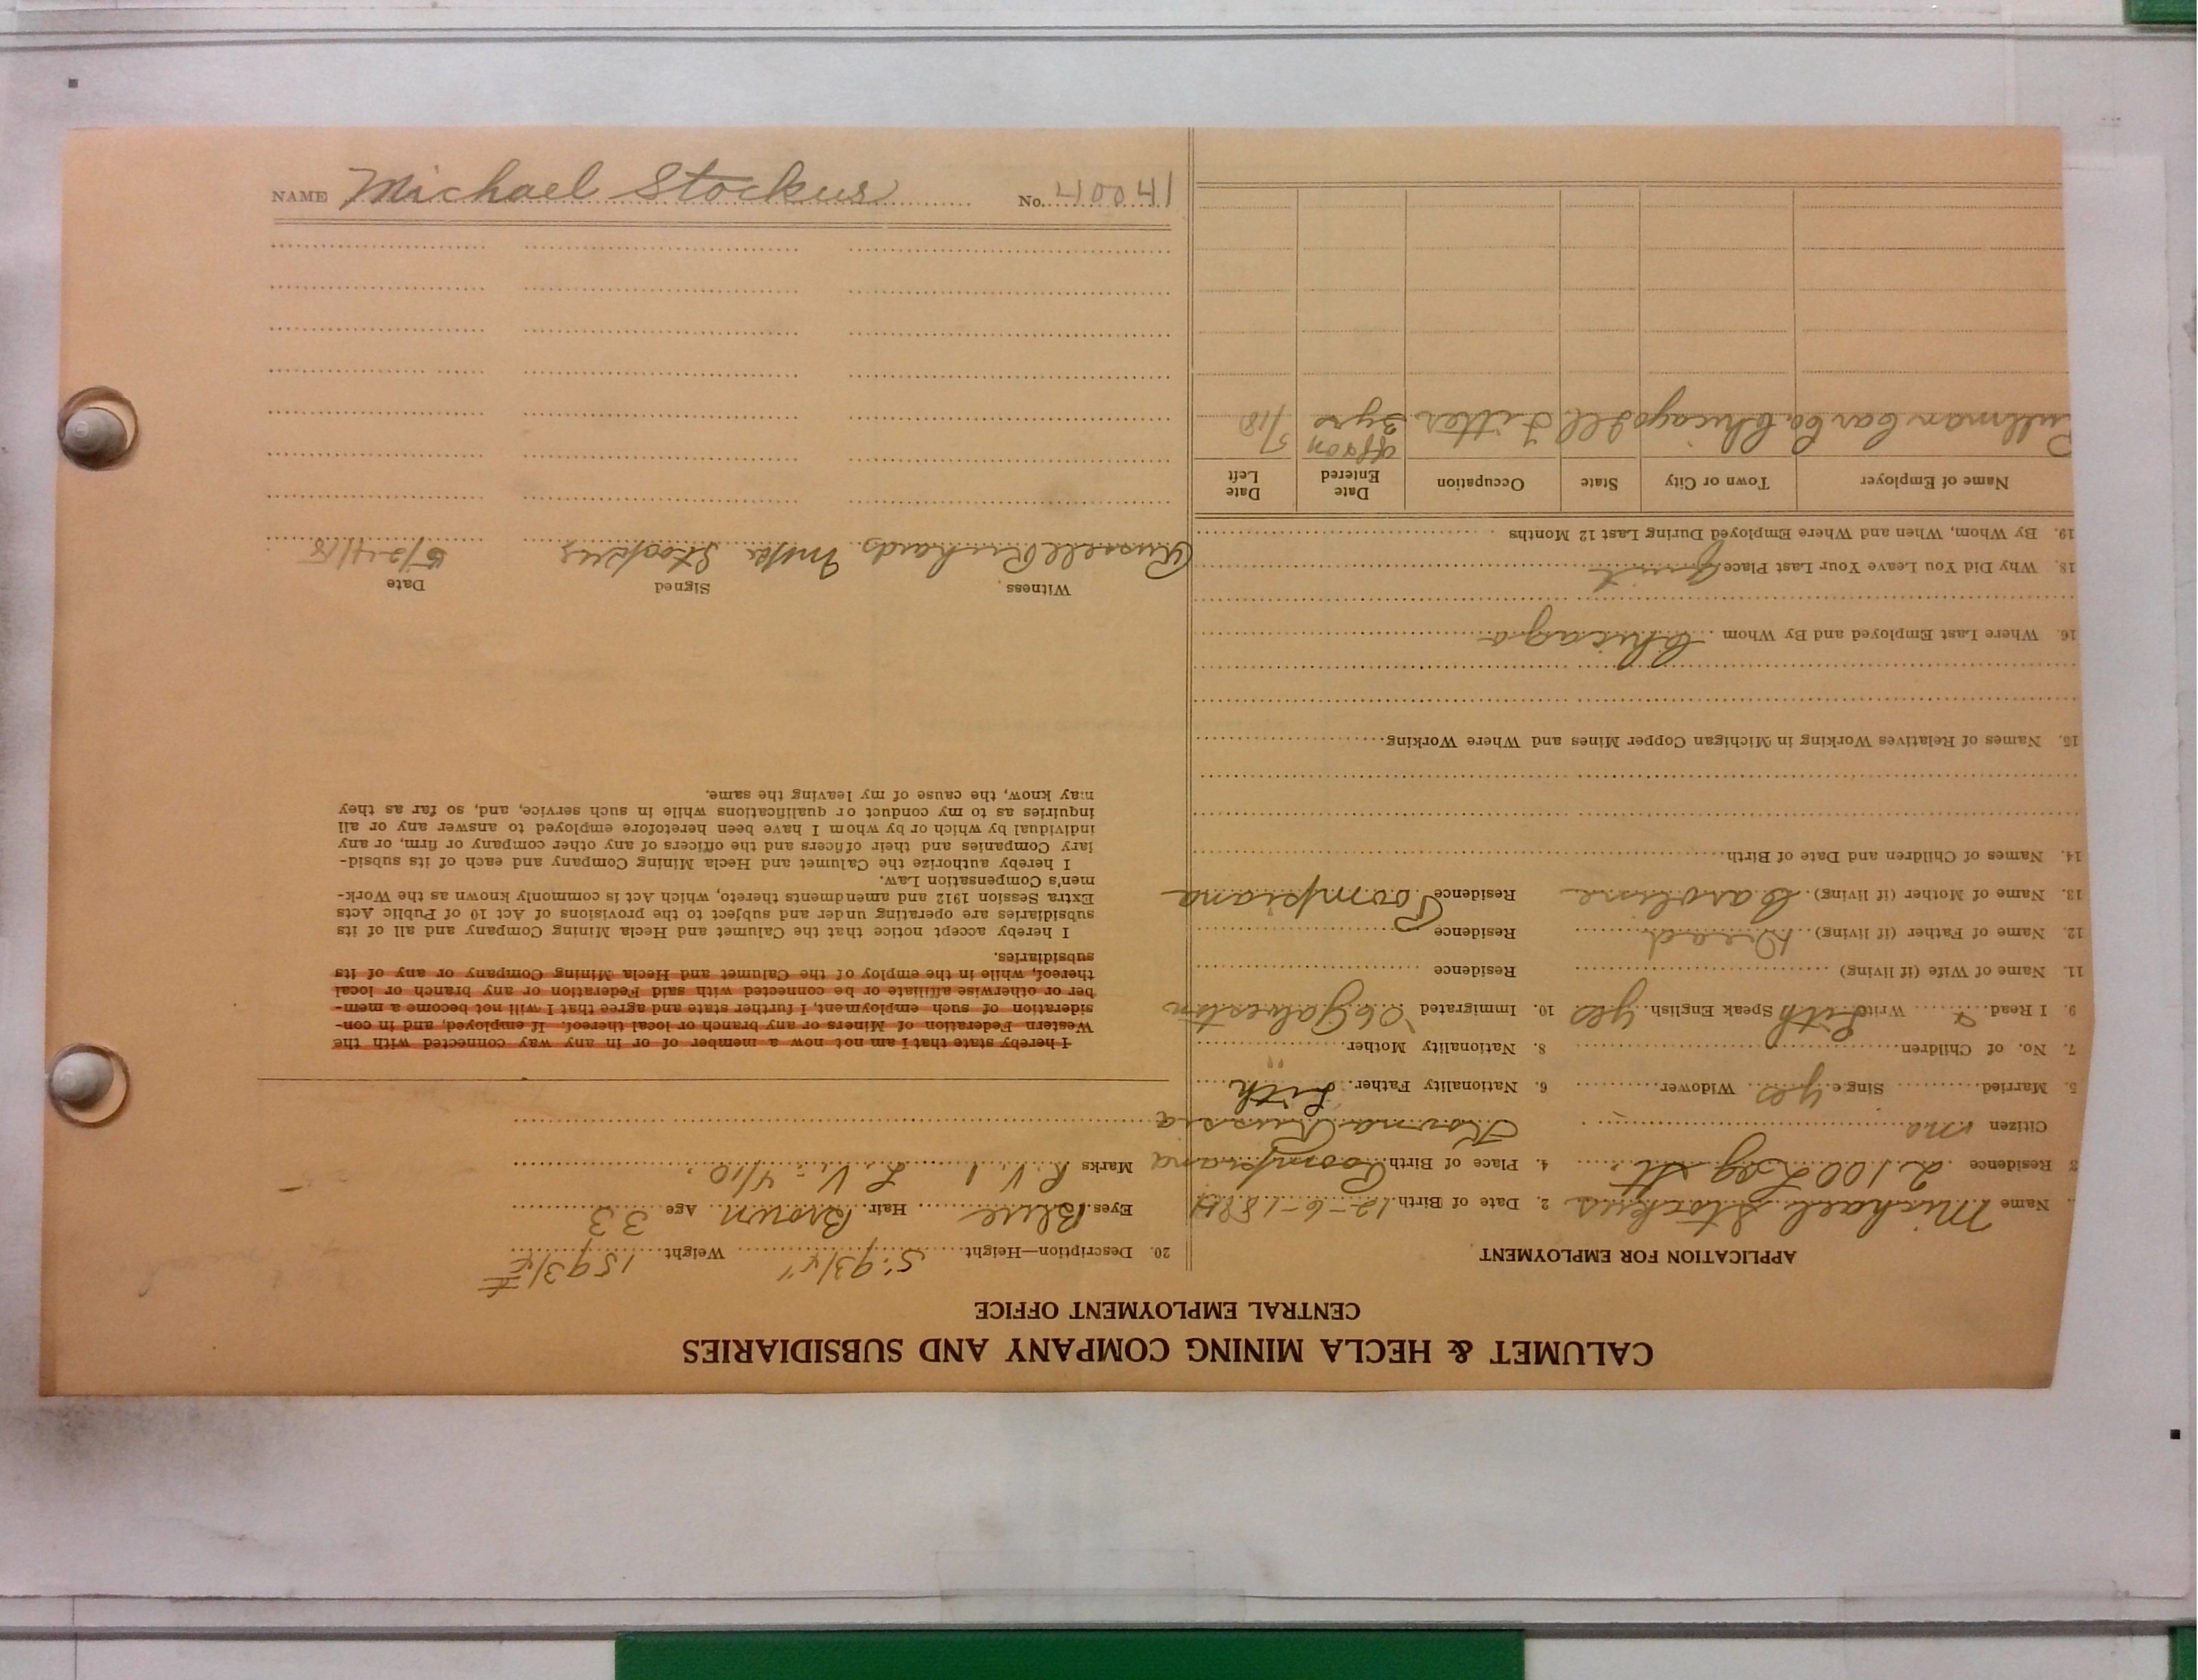 NAME Michael Stockus No. 40041
CALUMET & HECLA MINING COMPANY AND SUBSIDIARIES
CENTRAL EMPLOYMENT OFFICE
APPLICATION FOR EMPLOYMENT
Name Michael Stockus 2. Date of Birth 12-6-1884
3 Residence 2100 Log St 4. Place of Birth Poompiana
Citizen no Kovna Russia
5. Married Single yes Widower 6. Nationality Father Lith
7. No. of Children 8. Nationality Mother "
9. I Read & Write Lith Speak English yes 10. Immigrated '06 Galveston
11. Name of Wife (if living) Residence
12. Name of Father (if living) Dead Residence
13. Name of Mother (if living) Caroline Residence Poompiana
14. Names of Children and Date of Birth
15. Names of Relatives Working in Michigan Copper Mines and Where Working
16. Where Last Employed and By Whom Chicago
18. Why Did You Leave Your Last Place Quit
19. By Whom, When and Where Employed During Last 12 Months
Name of Employer Town or City State Occupation Date Entered Date Left
Pullman Car Co Chicago Ill Fitter off & on 3 yrs 5/18
20. Description—Height 5' 9 3/4" Weight 159 3/4 #
Eyes Blue Hair Brown Age 33
Marks R.V. 1 L.V. - 4/10
I hereby state that I am not now a member of or in any way connected with the
Western Federation of Miners or any branch or local thereof. If employed, and in con-
sideration of such employment, I further state and agree that I will not become a mem-
ber or otherwise affiliate or be connected with said Federation or any branch or local
thereof, while in the employ of the Calumet and Hecla Mining Company or any of its
subsidiaries.
I hereby accept notice that the Calumet and Hecla Mining Company and all of its
subsidiaries are operating under and subject to the provisions of Act 10 of Public Acts
Extra Session 1912 and amendments thereto, which Act is commonly known as the Work-
men's Compensation Law.
I hereby authorize the Calumet and Hecla Mining Company and each of its subsid-
iary Companies and their officers and the officers of any other company or firm, or any
individual by which or by whom I have been heretofore employed to answer any or all
inquiries as to my conduct or qualifications while in such service, and, so far as they
may know, the cause of my leaving the same.
Witness Signed Date
Russell Richards Mike Stockus 5/24/18